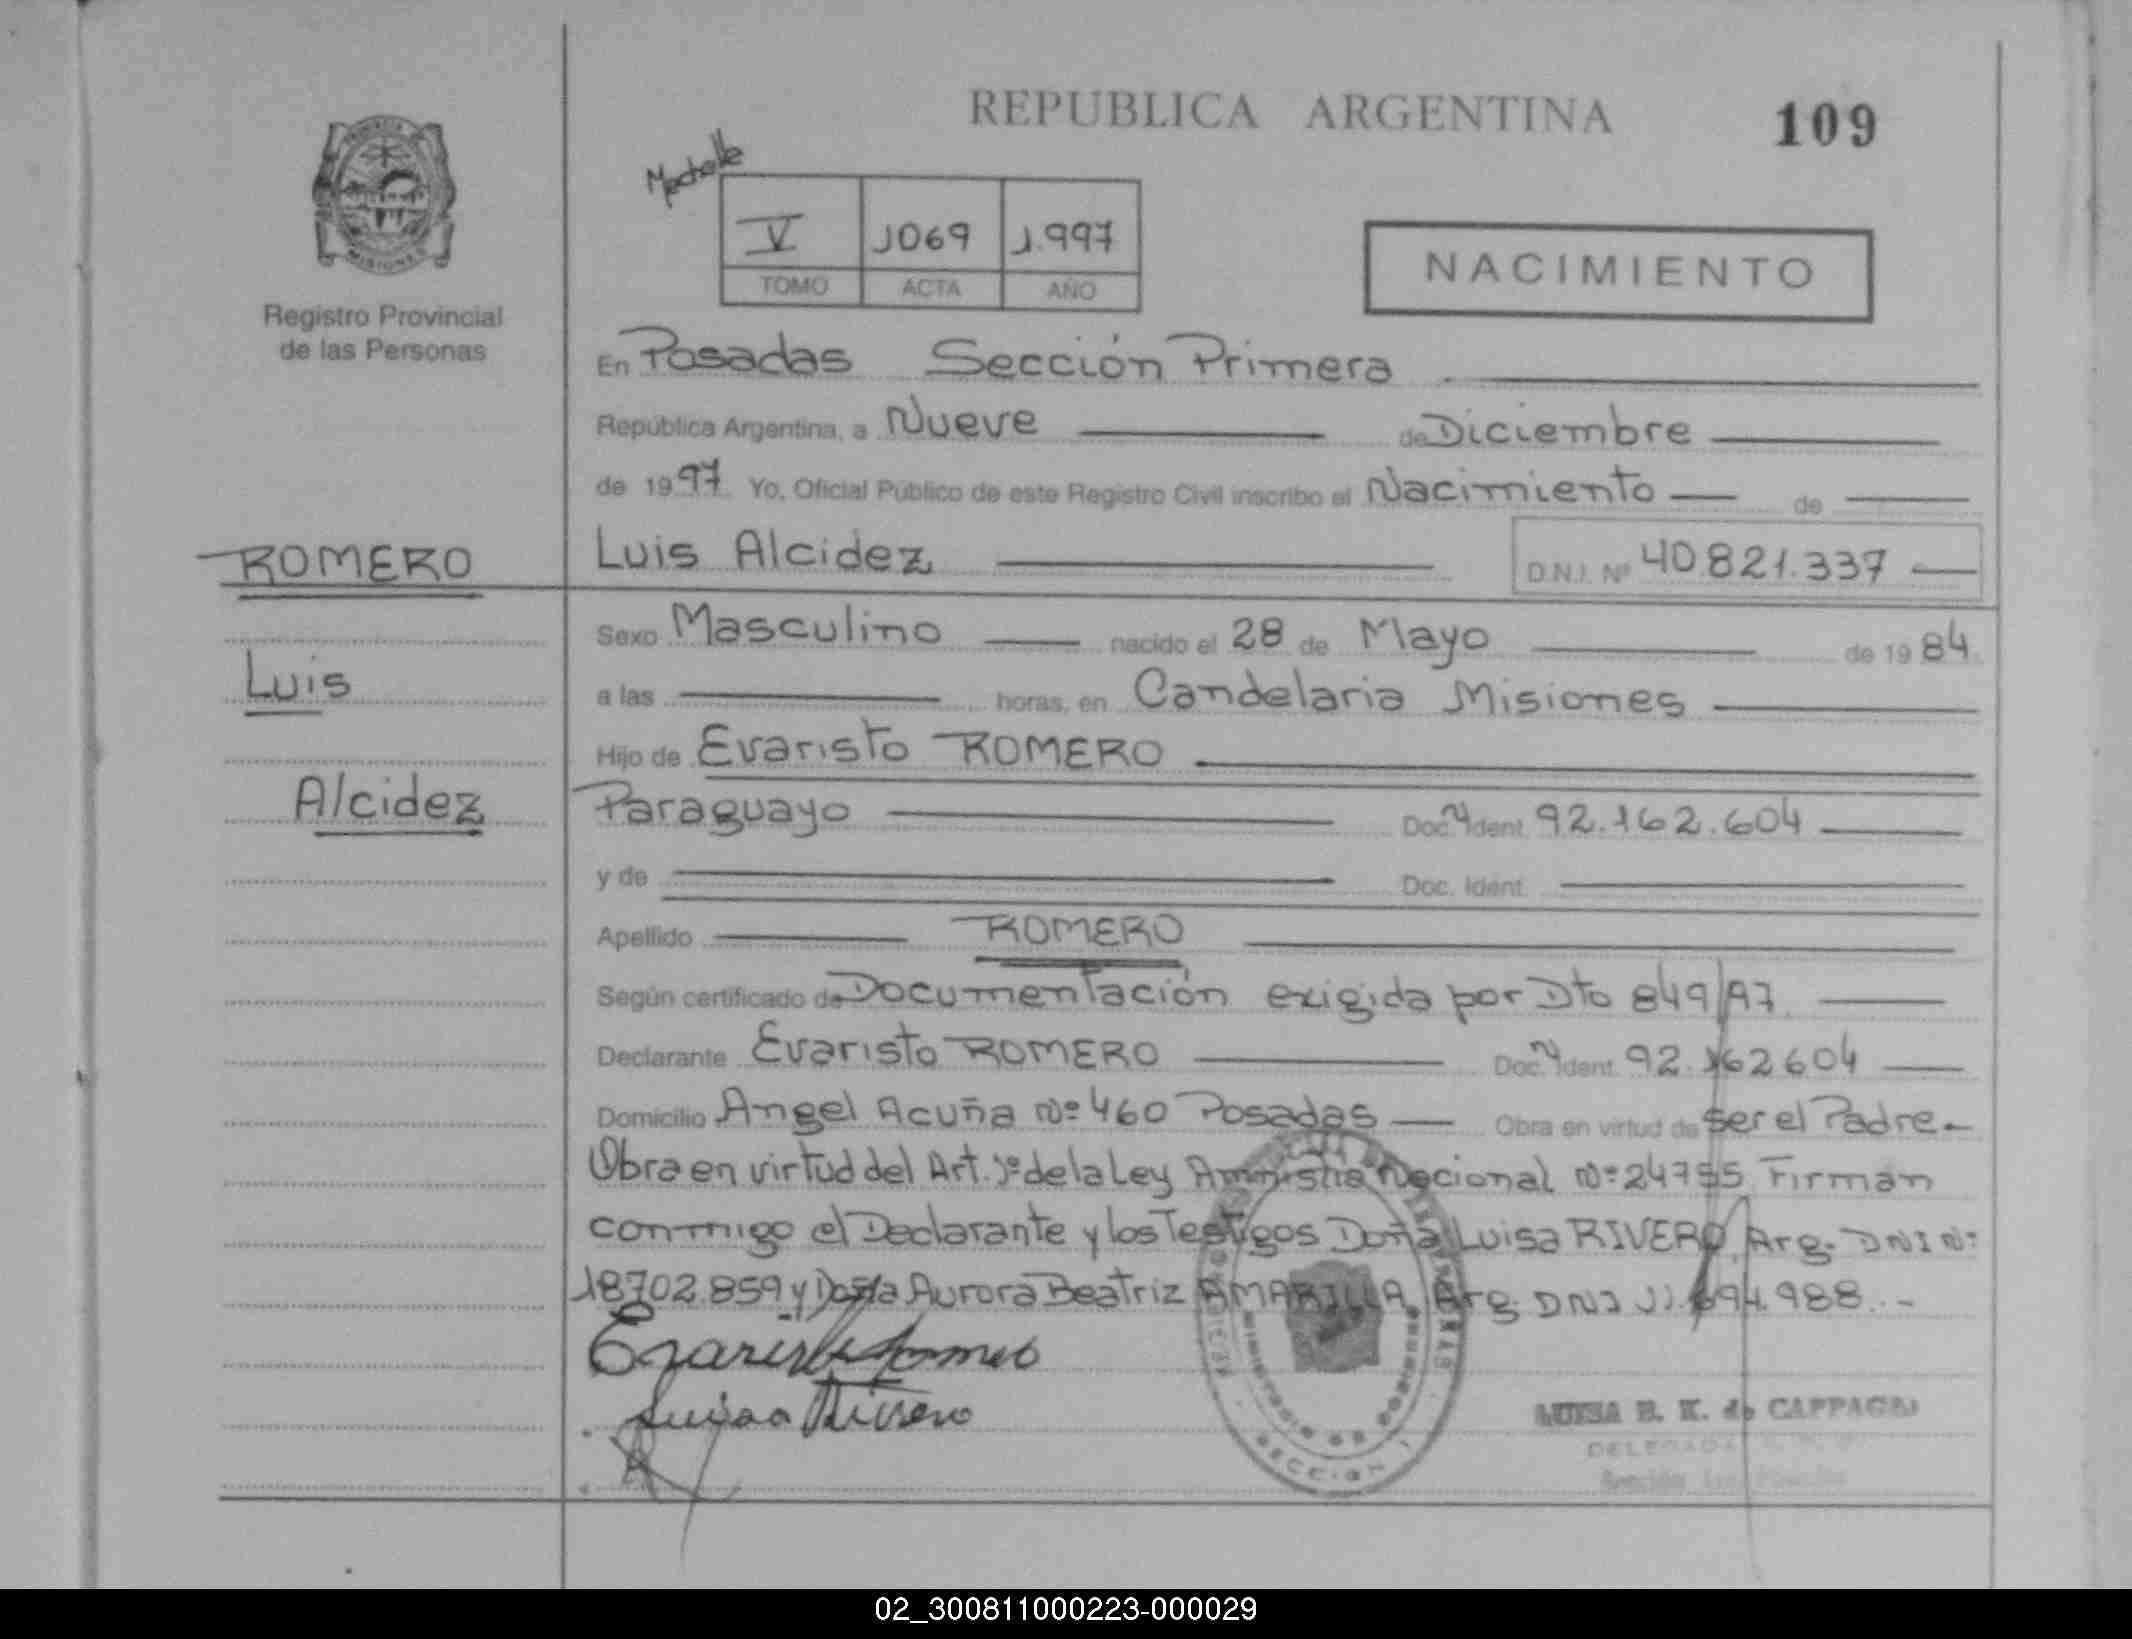 REPUBLICA ARGENTINA
109
V 1069 1.997
TOMO ACTA AÑO
NACIMIENTO
MISIONES
Registro Provincial
de las Personas
En Posadas Sección Primera
República Argentina, a Nueve de Diciembre
de 1997 Yo, Oficial Público de este Registro Civil inscribo el Nacimiento de
ROMERO
Luis Alcidez D.N.I. Nº 40.821.337
Sexo Masculino nacido el 28 de Mayo de 1984
Luis
a las horas, en Candelaria Misiones
Hijo de Evaristo ROMERO
Alcidez
Paraguayo Doc. Ident. 92.162.604
y de Doc. Ident.
Apellido ROMERO
Según certificado de Documentación exigida por Dto 849/97
Declarante Evaristo ROMERO Doc. Ident. 92.162604
Domicilio Angel Acuña Nº 460 Posadas Obra en virtud de ser el Padre.-
Obra en virtud del Art. 1º de la Ley Amnistia Nacional Nº 24755 Firman
conmigo el Declarante y los Testigos Doña Luisa RIVERO, Arg. DNI Nº
18702.859 y Doña Aurora Beatriz AMARILLA, Arg. DNI 11.694.988.-
Luisa Rivero
LUISA B. K. de CAPPAGLI
DELEGADA
SECCION 1
02_300811000223-000029